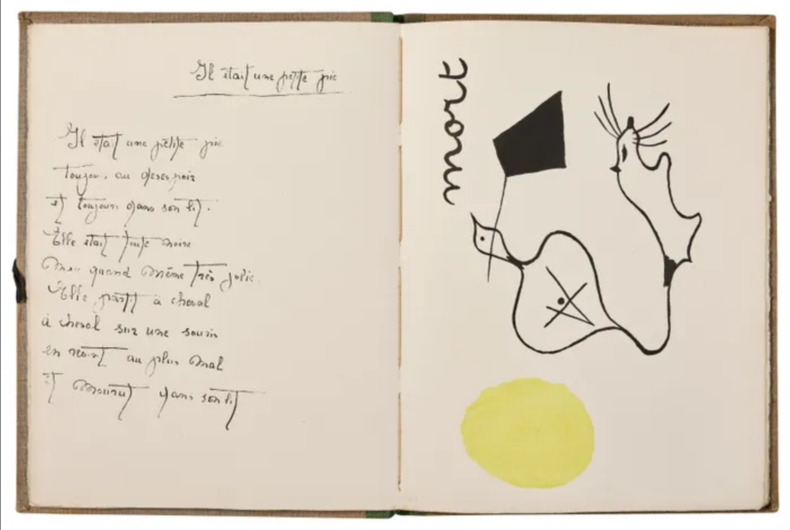 Il était une petite pie
Il était une petite pie
toujours au desespoir
et toujours dans son lit.
Elle était toute noire
Mais quand même très jolie.
Elle partit à cheval
à cheval sur une souris
en riant au plus mal
et mourut dans son lit
mort